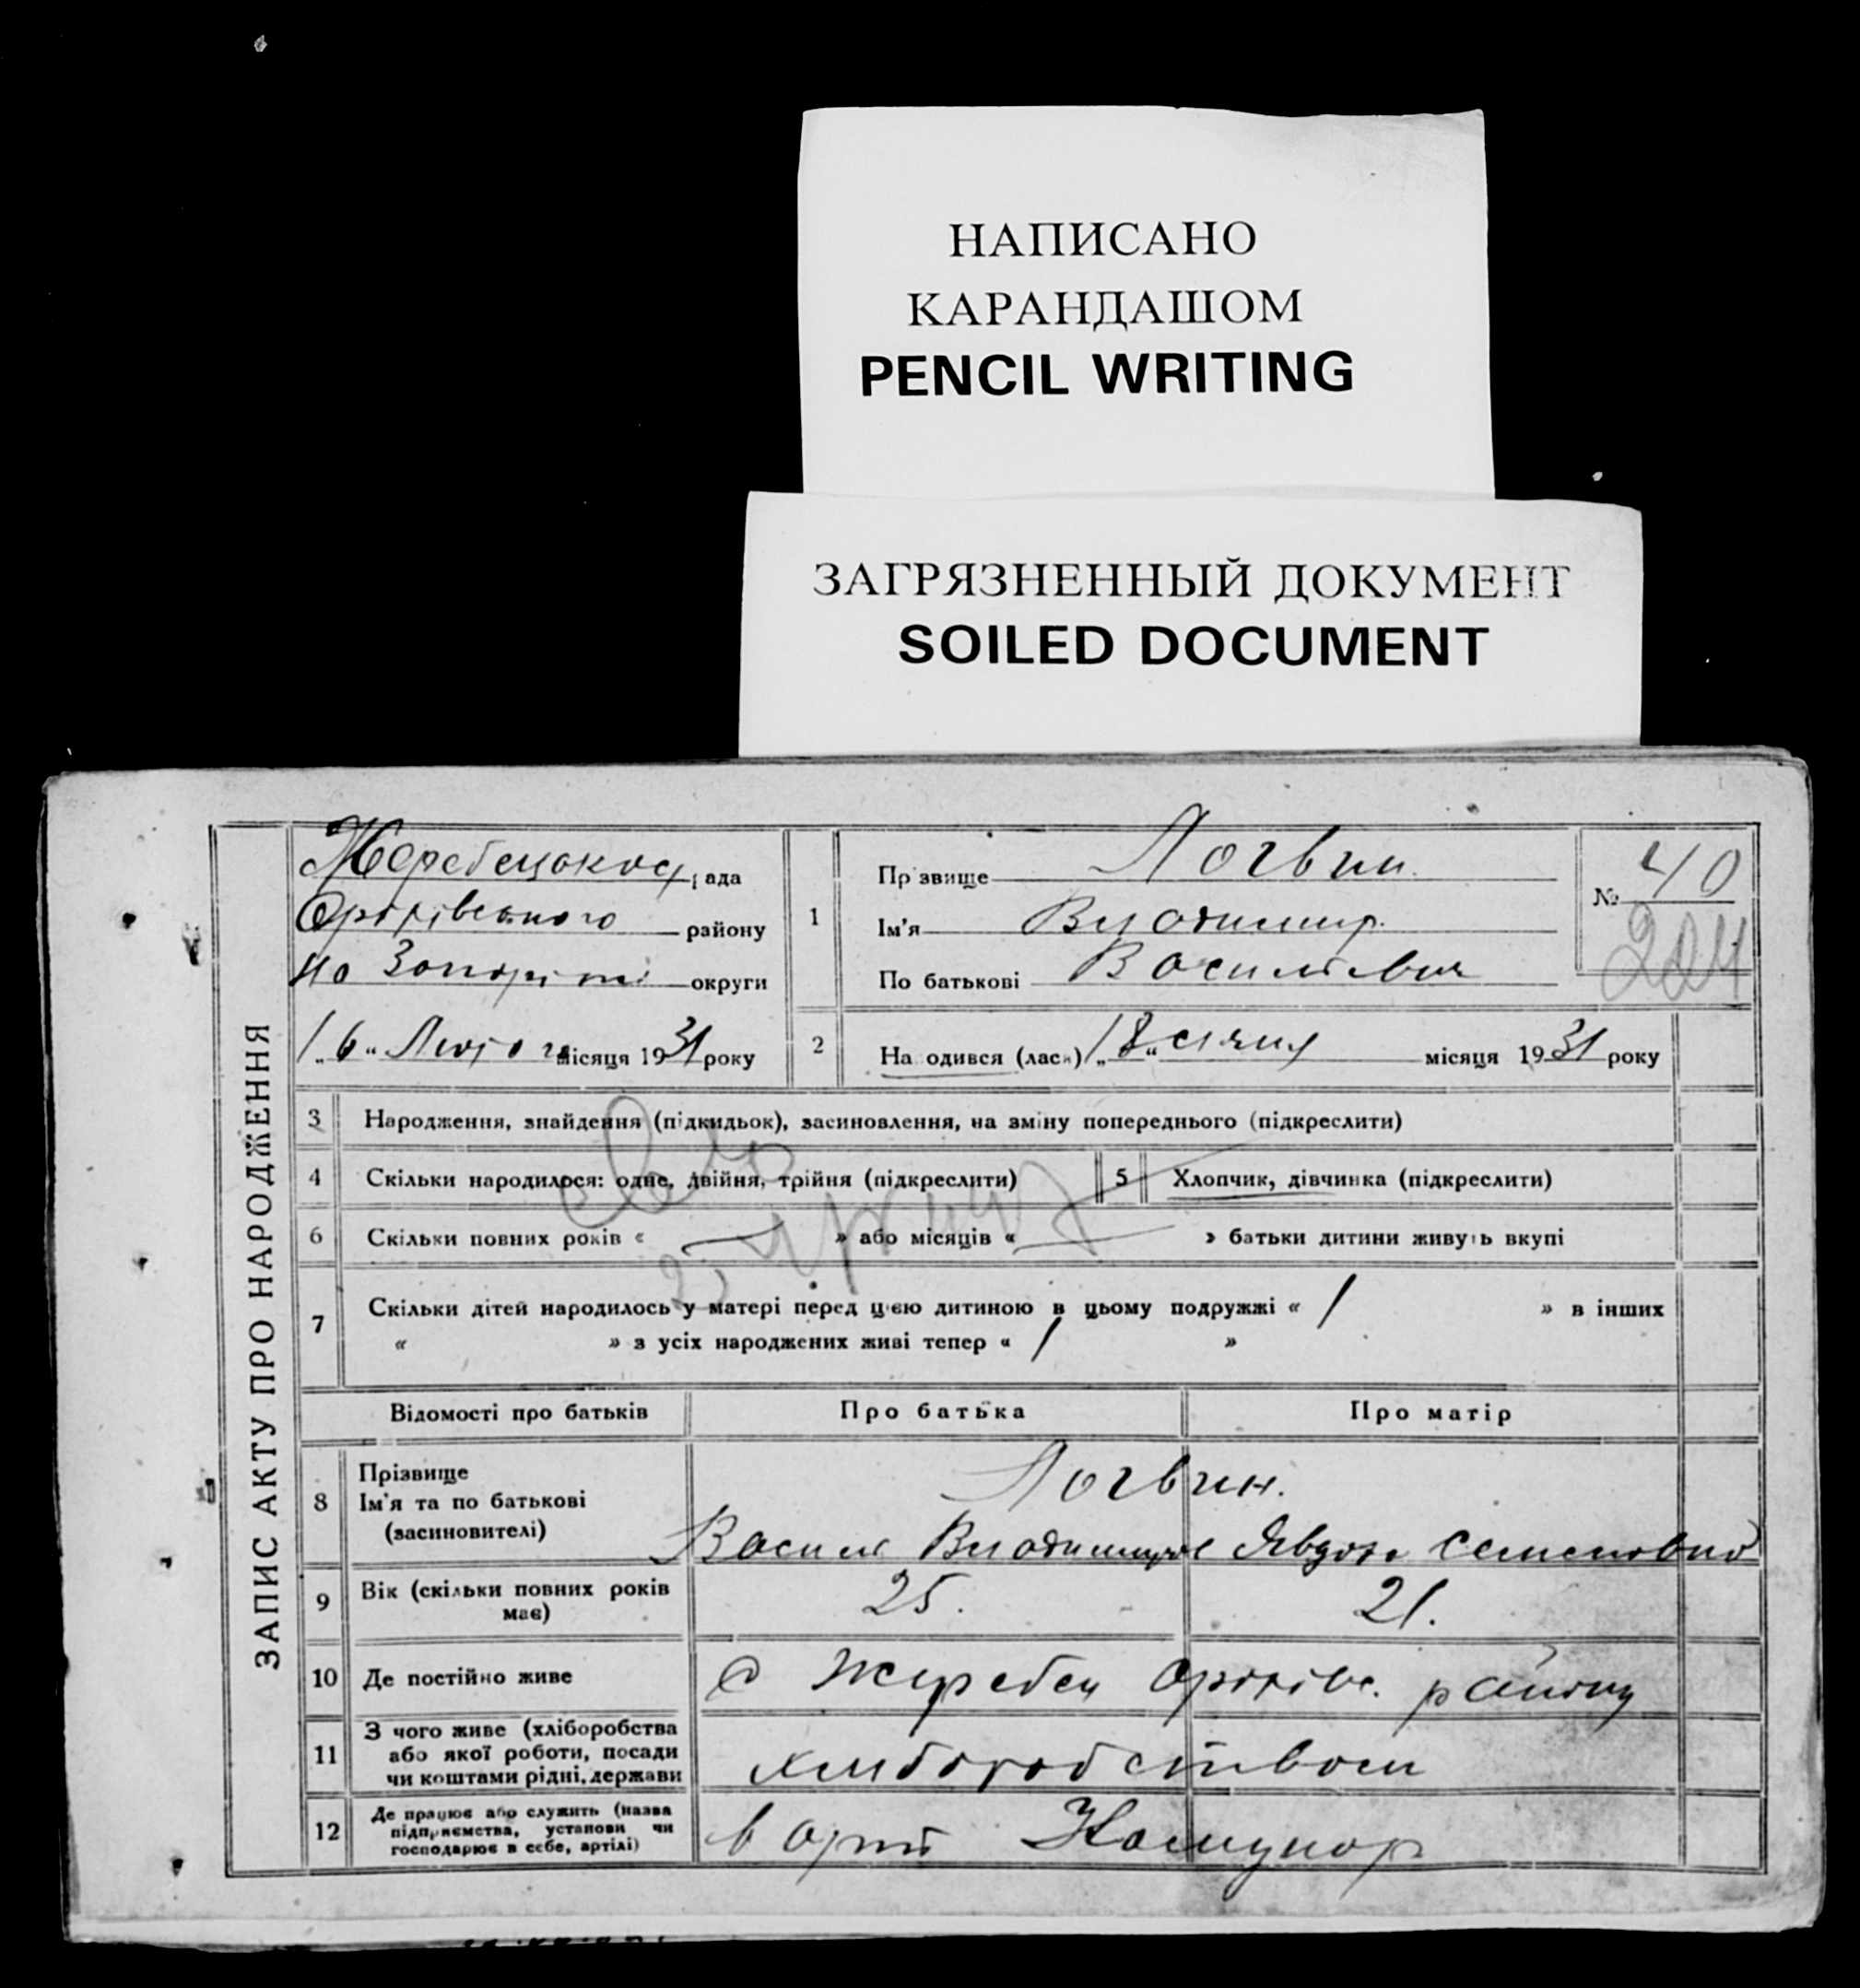 НАПИСАНО
КАРАНДАШОМ
PENCIL WRITING
ЗАГРЯЗНЕННЫЙ ДОКУМЕНТ
SOILED DOCUMENT
ЗАПИС АКТУ ПРО НАРОДЖЕННЯ
Жеребецька рада
Оріхівського району
на Запоріжжі округи
„16“ Лютого місяця 1931 року
1
Прізвище Логвин
Ім'я Володимир
По батькові Васильович
№ 40
224
2
На одився (лась) „18“ січня місяця 1931 року
3 Народження, знайдення (підкидьок), засиновлення, на зміну попереднього (підкреслити)
4 Скільки народилося: одне, двійня, трійня (підкреслити)
5 Хлопчик, дівчинка (підкреслити)
6 Скільки повних років « — » або місяців « — » батьки дитини живуть вкупі
7 Скільки дітей народилось у матері перед цією дитиною в цьому подружжі « 1 » в інших
« » з усіх народжених живі тепер « 1 »
Відомості про батьків Про батька Про матір
8 Прізвище
Ім'я та по батькові
(засиновителі)
Логвин.
Василь Явдоха Семеновна
9 Вік (скільки повних років
має)
25. 21.
10 Де постійно живе
с Жеребец Оріхівс. району
11 З чого живе (хліборобства
або якої роботи, посади
чи коштами рідні, держави
хліборобством
12 Де працює або служить (назва
підприємства, установи чи
господарює в себе, артілі)
в арт Комунар